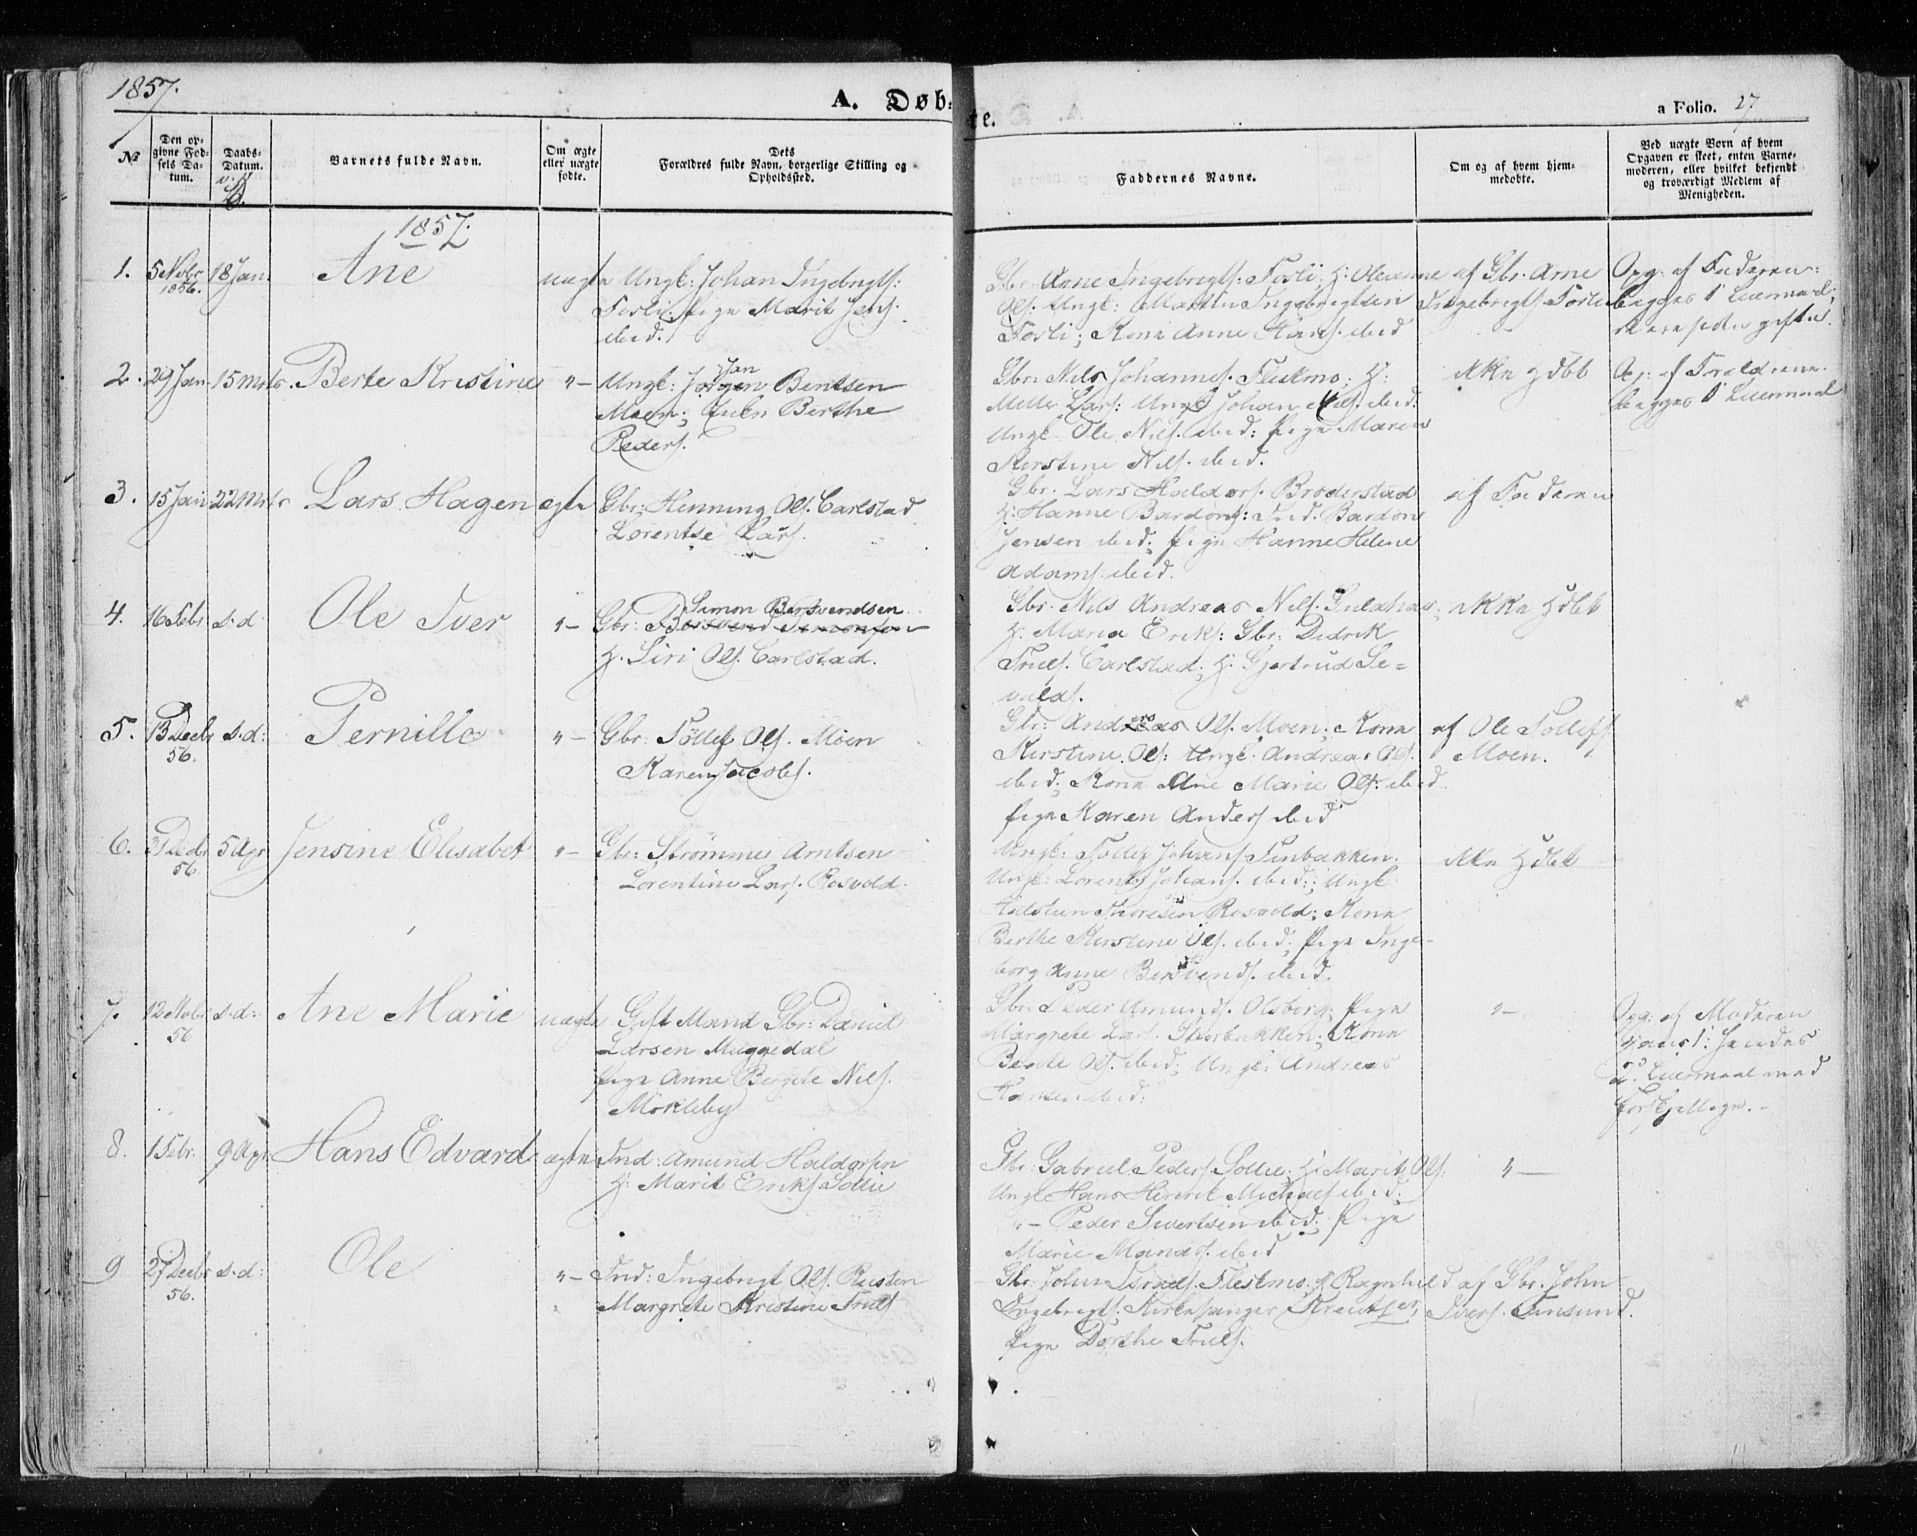 1857.
A. Døb=
te.
a Folio. 27
№
Den op-
givne Fød-
sels Da-
tum.
Daabs-
Datum.
Barnets fulde Navn.
Om ægte
eller uægte
fødte.
Dets
Forældres fulde Navn, borgerlige Stilling og
Opholdssted.
Faddernes Navne.
Om og af hvem hjem-
medøbte.
Ved uægte Børn af hvem
Opgaven er skeet, enten Barne-
moderen, eller hvilket bekjendt
og troværdigt Medlem af
Menigheden.
1857.
1. 5 Novbr 1856. 18 Jan. Ane uægte
Ungk: Johan Ingebrigts:
Fosli; Pige Marit Jens:
ibid.
Gbr: Arne Ingebrigts: Fosli, H: Oleanne
Ols: Ungk: Martin Ingebrigtsen
Fosli; Kone Anne Hans. ibid
af Gbr. Arne
Ingebrigts. Fosli
Opg: af Faderen:
begges 1 Leiermaal;
2. 29 Jan 15 Marts. Berte Kristine "–
Ungk: Jørgen Jan Bentsen
Moen; Berthe
Peders.
Gbr: Nils Johannes. Flestmo; H:
Mette Lars: Ungk Johan Nils. ibid.
Ungk. Ole Nils. ibid: Pige Maren
Kirstine Nils. ibid.
ikke Hdbt
Op: af Forældrene.
begges 1 Leiermaal
3. 15 Jan 22 Marts Lars Hagen ægte
Gbr: Henning Ols. Carlstad
Lorentse Lars.
Gbr. Lars Haldors. Broderstad
H: Hanne Bardons: Ind. Bardon
Jensen ibid; Pige Hanne Helene
Adams. ibid.
af Faderen
4. 16 Febr s.d. Ole Iver "–
Simon Bersvendsen
Gbr: Bersvend Simonsen
H. Siri Ols. Carlstad.
Gbr. Nils Andreas Nils.
H. Maria Eriks: Gbr: Didrik
Truls. Carlstad; H: Gjertrud Si=
valds.
ikke Hdbt
5. 13 Decbr 56. s.d: Pernille "–
Gbr: Tollef Ols. Moen
Karen Jacobs.
Gbr: Anders Ols. Moen; Kone
Kirstine Ols: Ungk: Andreas Ols.
ibid; Kone Ane Marie Ols. ibid.
Pige Karen Anders. ibid
af Ole Tollefs
Moen.
6. Decbr 56. 5 Apr Jensine Elisabet "–
Gbr: Strømme Arntsen
Lorentine Lars. Rosvold.
Ungk: Tollef Johans. Finbakken.
Ungk: Lorents Johans. ibid; Ungk
Halsteen Thoresen Rosvold; Kone
Berthe Kirstine Ols. ibid; Pige Inge-
borg Anne Bersvends. ibid.
ikke Hdbt
7. 12 Novbr 56 s.d: Ane Marie uægte
Gift Mand Gbr: Daniel
Larsen Muggedal
Pige Anne Bergite Nils.
Mokleby
Gbr: Peder Amunds. Olsborg; Pige
Margrete Lars. Storbakken; Kone
Berete Ols. ibid; Ungk: Andreas
Hansen ibid:
"–
Opg: af Moderen
Hans 1: Hendes
2: Leiermaal med
forskjellige. –
8. 1 Febr. 9 Apr. Hans Edvard ægte
Ind: Amund Haldorsen
H: Marit Eriks. Sollie
Gbr: Gabriel Peders. Sollie; H: Marit Ols:
Ungk Hans Henrik Michaels. ibid:
"– Peder Sivertsen ibid; Pige
Marie Mands. ibid
"–
9 27 Decbr 56. s.d: Ole "–
Ind: Ingebrigt Ols. Rusten
Margrete Kristine Truls
Gbr: John Israels. Flestmo; H Ragnhild
Ingebrigts. Kirkesanger Kreutzer,
Pige Dorthe Truls.
af Gbr. John
Ivers. Finsund.